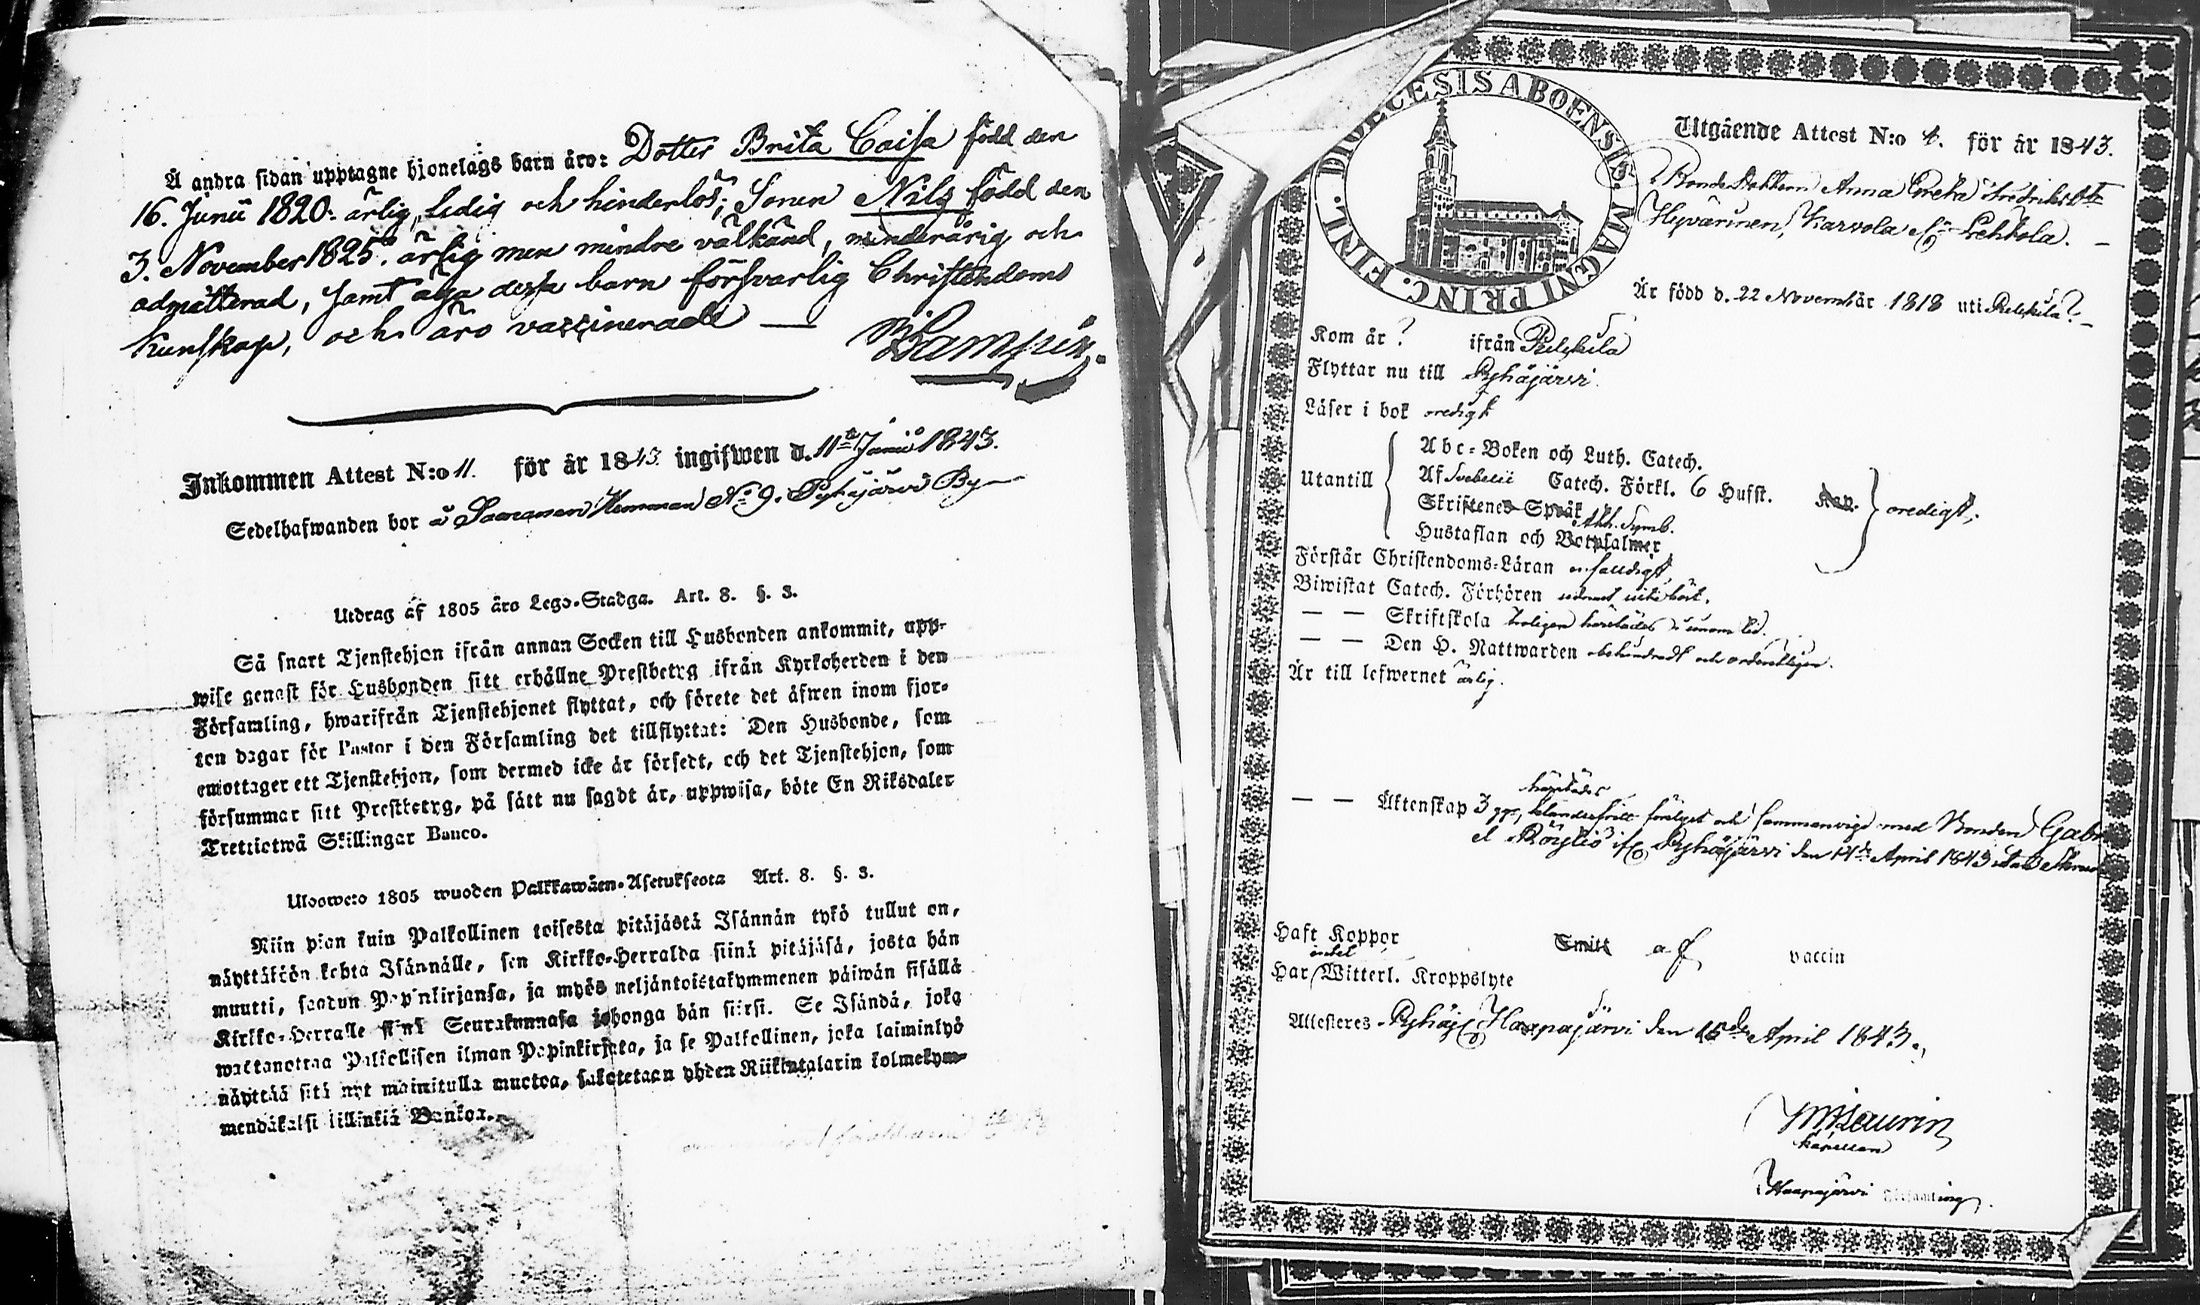 Å andra sidan upptagne hjonelags barn äro: Dotter Brita Caisa född den
16. Junii 1820. ärlig, ledig och hinderlös; Sonen Nils född den
3. November 1825. ärlig men mindre välkänd, minderårig och
admitterad, samt äga dessa barn försvarlig Christendoms
kunskap, och äro vaccinerade —
Inkommen Attest N:o 11. för år 1843. ingifwen d. 11te Junii 1843.
Sedelhafwanden bor å Saaranen Hemman No 9. Pyhäjärvi By
Utdrag af 1805 års Lego-Stadga. Art. 8. §. 3.
Så snart Tjenstehjon ifrån annan Socken till Husbonden ankommit, upp-
wise genast för Husbonden sitt erhållne Prestbetyg ifrån Kyrkoherden i den
Församling, hwarifrån Tjenstehjonet flyttat, och förete det äfwen inom fjor-
ton dagar för Pastor i den Församling det tillflyttat: Den Husbonde, som
emottager ett Tjenstehjon, som dermed icke är försedt, och det Tjenstehjon, som
försummar sitt Prestbetyg, på sätt nu sagdt är, uppwisa, böte En Riksdaler
Trettiotwå Skillingar Banco.
Uloswето 1805 wuoden Palkkawäen-Asetuksesta Art. 8. §. 3.
Niin pian kuin Palkollinen toisesta pitäjästä Isännän tykö tullut on,
näyttäköön kohta Isännälle, sen Kirkko-Herralda siinä pitäjäsä, josta hän
muutti, saadun Papinkirjansa, ja myös neljäntoistakymmenen päiwän sisällä
Kirkko-Herralle siinä Seurakunnasa johonga hän siirsi. Se Isändä, joka
wastanottaa Palkollisen ilman Papinkirjata, ja se Palkollinen, joka laiminlyö
näyttää sitä nyt mainitulla muotoa, sakotetaan yhden Riikintalarin kolmekym-
mendäkaksi killinkiä Bankoa.
DIOECESIS ABOENSIS. MAGNI PRINC. FINL.
Utgående Attest N:o 4. för år 1843.
Bondedottern Anna Greta Fredriksdr
Hyvärinen, Karvola
Är född d. 22 November 1818 uti Pielpula?
Kom år ? ifrån Pielpula
Flyttar nu till Pyhäjärvi.
Läser i bok oredigt
Utantill
Abc-Boken och Luth. Catech.
Af Svebelii Catech. Förkl. 6 Hufst. Kap.
Skriftenes Språk
Ath. Symb.
Hustaflan och Botpsalmer
oredigt;
Förstår Christendoms-Läran enfaldigt
Biwistat Catech. Förhören
— — Skriftskola
— — Den H. Nattwarden obehindradt och ordentligen.
Är till lefwernet ärlig.
härstädes
— — Äktenskap 3 och sammanvigd med Bonden Gabri
el Pyhäjärvi den 14de April 1843
Haft Koppor Smitt af vaccin
intet
Har Witterl. Kroppslyte
Attesteres Pyhäj Haapajärvi den 15de April 1843.
Kapellan
Haapajärvi Församling.